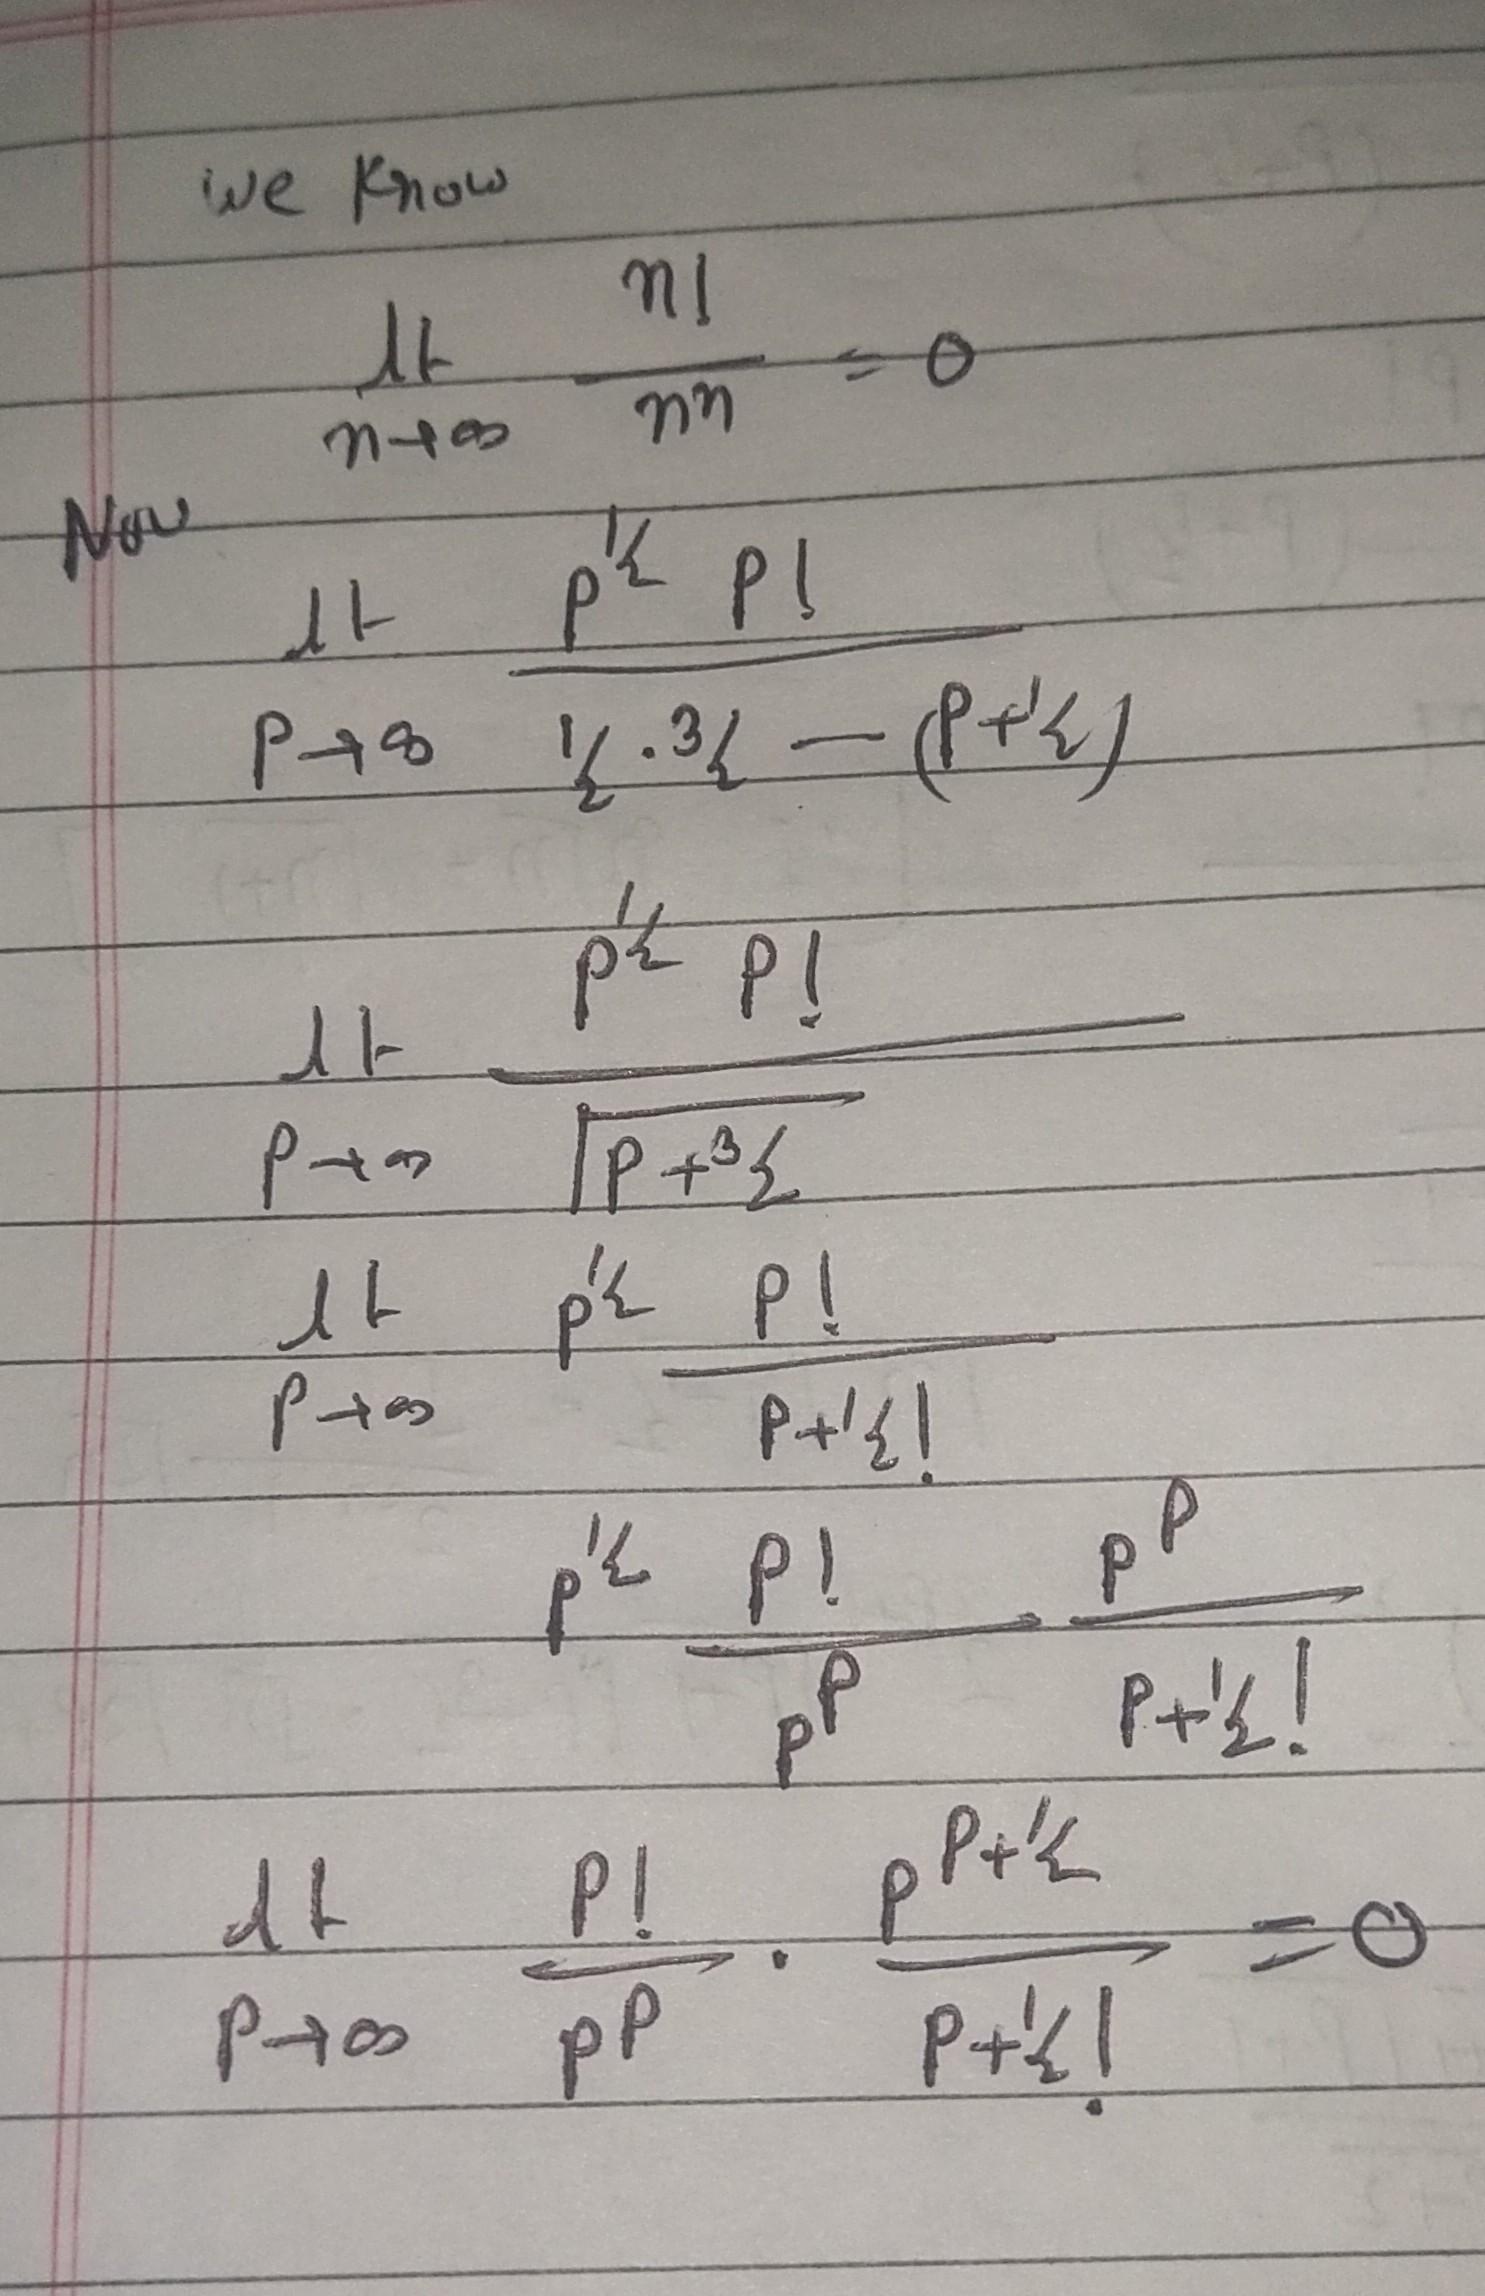 we know
lt n→∞ n!/nⁿ = 0
Now
lt p→∞ p^½ p! / ½·3/2 — (p+½)
lt p→∞ p^½ p! / Γp+3/2
lt p→∞ p^½ p!/p+½!
p^½ p!/p^p p^p/p+½!
lt p→∞ p!/p^p · p^(p+½)/p+½! = 0